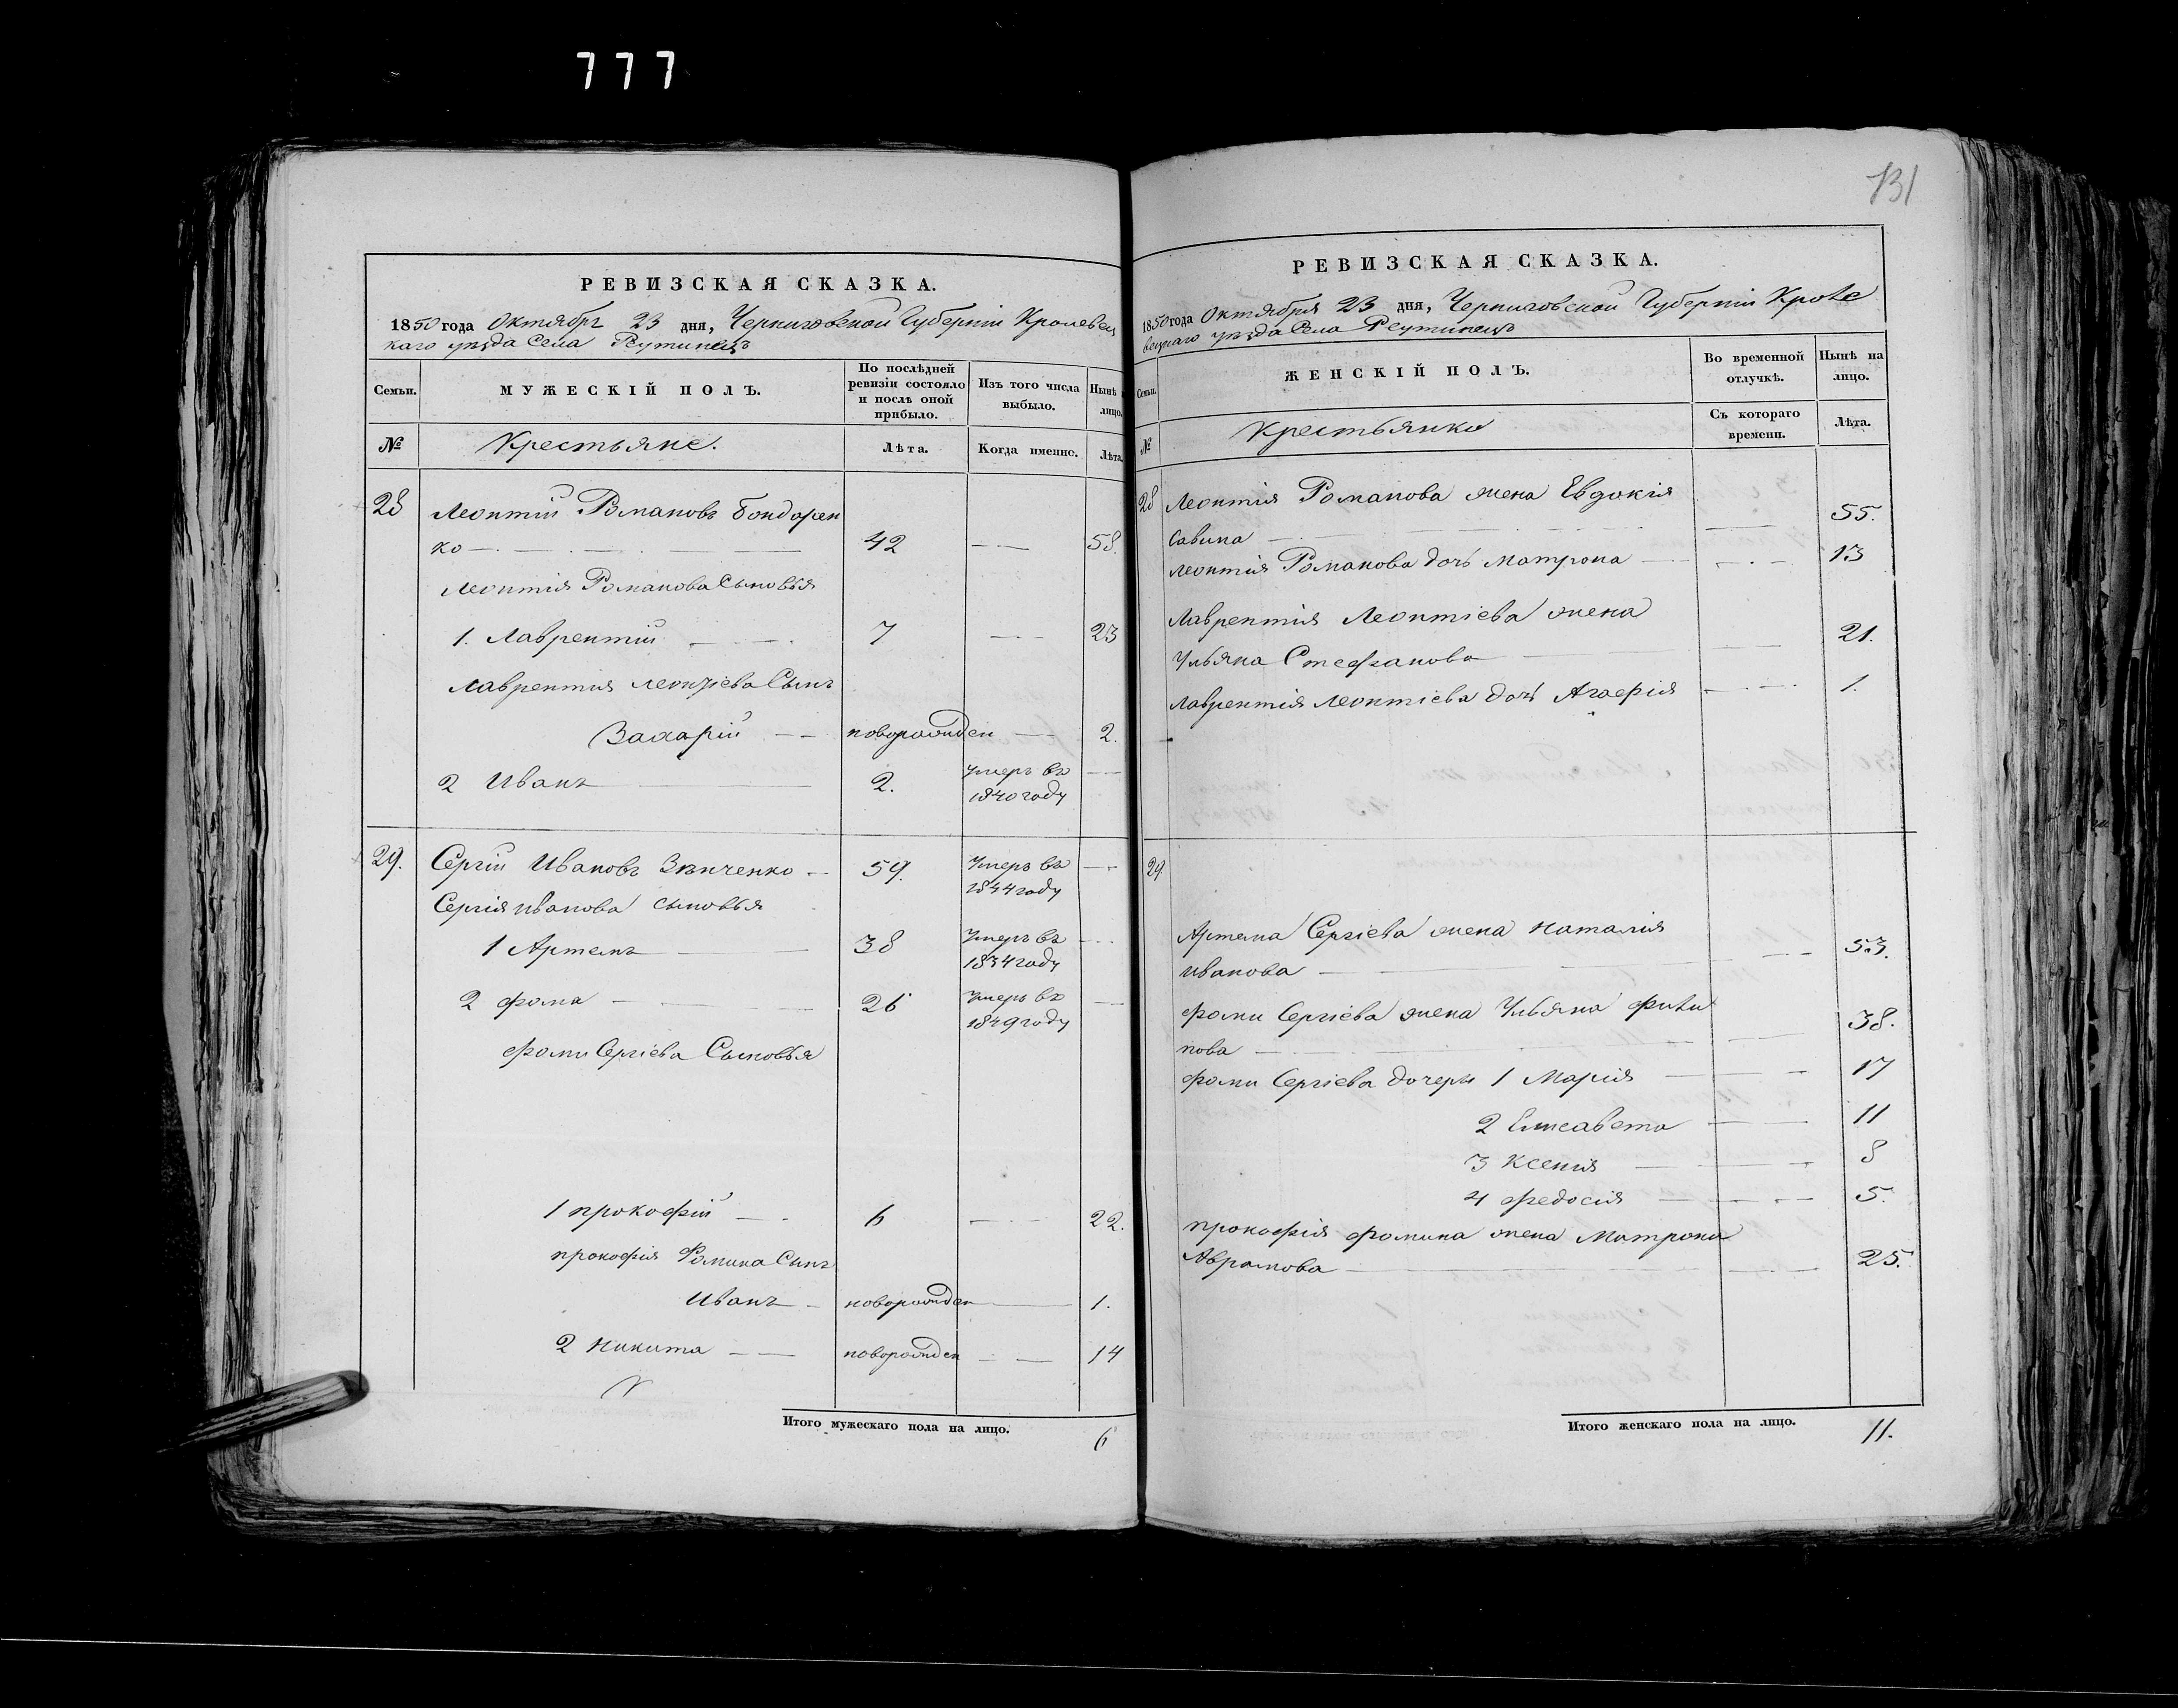 777
131
РЕВИЗСКАЯ СКАЗКА.
1850 года Октября 23 дня, Черниговской Губерніи Кролевец
каго уезда Села Реутинецъ
Семьи.
МУЖЕСКІЙ ПОЛЪ.
По послѣдней ревизіи состояло и послѣ оной прибыло.
Изъ того числа выбыло.
Нынѣ на лицо.
№
Крестьяне.
Лѣта.
Когда именно.
Лѣта.
28 Леонтій Романовъ Бондарен
ко — 42 — 58.
Леонтія Романова Сыновья
1. Лаврентій — 7 — 23
Лаврентия Леонтіева Сынъ
Захарій — новорожден — 2.
2 Иванъ — 2. умеръ въ —
1840 году
29. Сергій Ивановъ Зѣнченко — 59. Умеръ въ —
1844 году
Сергія иванова сыновья
1 Артемъ — 38 Умеръ въ —
1834 году
2 фома — 26 Умеръ въ —
1849 году
фоми Сергіева Сыновья
1 прокофій — 6 — 22.
прокофія Фомина Сынъ
Иванъ — новорожден — 1.
2 Никита — новорожден — 14
Итого мужескаго пола на лицо. 6
РЕВИЗСКАЯ СКАЗКА.
1850 года Октября 23 дня, Черниговской Губерніи Кроле
вецкаго уезда Села Реутинецъ
Семьи.
ЖЕНСКІЙ ПОЛЪ.
Во временной отлучкѣ.
Нынѣ на лицо.
№
Крестьянки
Съ котораго времени.
Лѣта.
28 Леонтія Романова жена Евдокія
Савина — — 55.
Леонтія Романова дочь матрона — — 13
Лаврентія Леонтіева жена
Ульяна Стефанова — — 21.
Лаврентія Леонтіева дочь Агафія — 1.
29
Артема Сергіева жена наталія
иванова — — 53.
фоми Сергіева жена Ульяна фили
пова — — 38.
фоми Сергіева дочери 1 Марія — — 17
2 Елисавета — 11
3 Ксенія — — 8
4 федосія — — 5.
прокофія фомина жена Матрона
Аврамова — — 25.
Итого женскаго пола на лицо. 11.